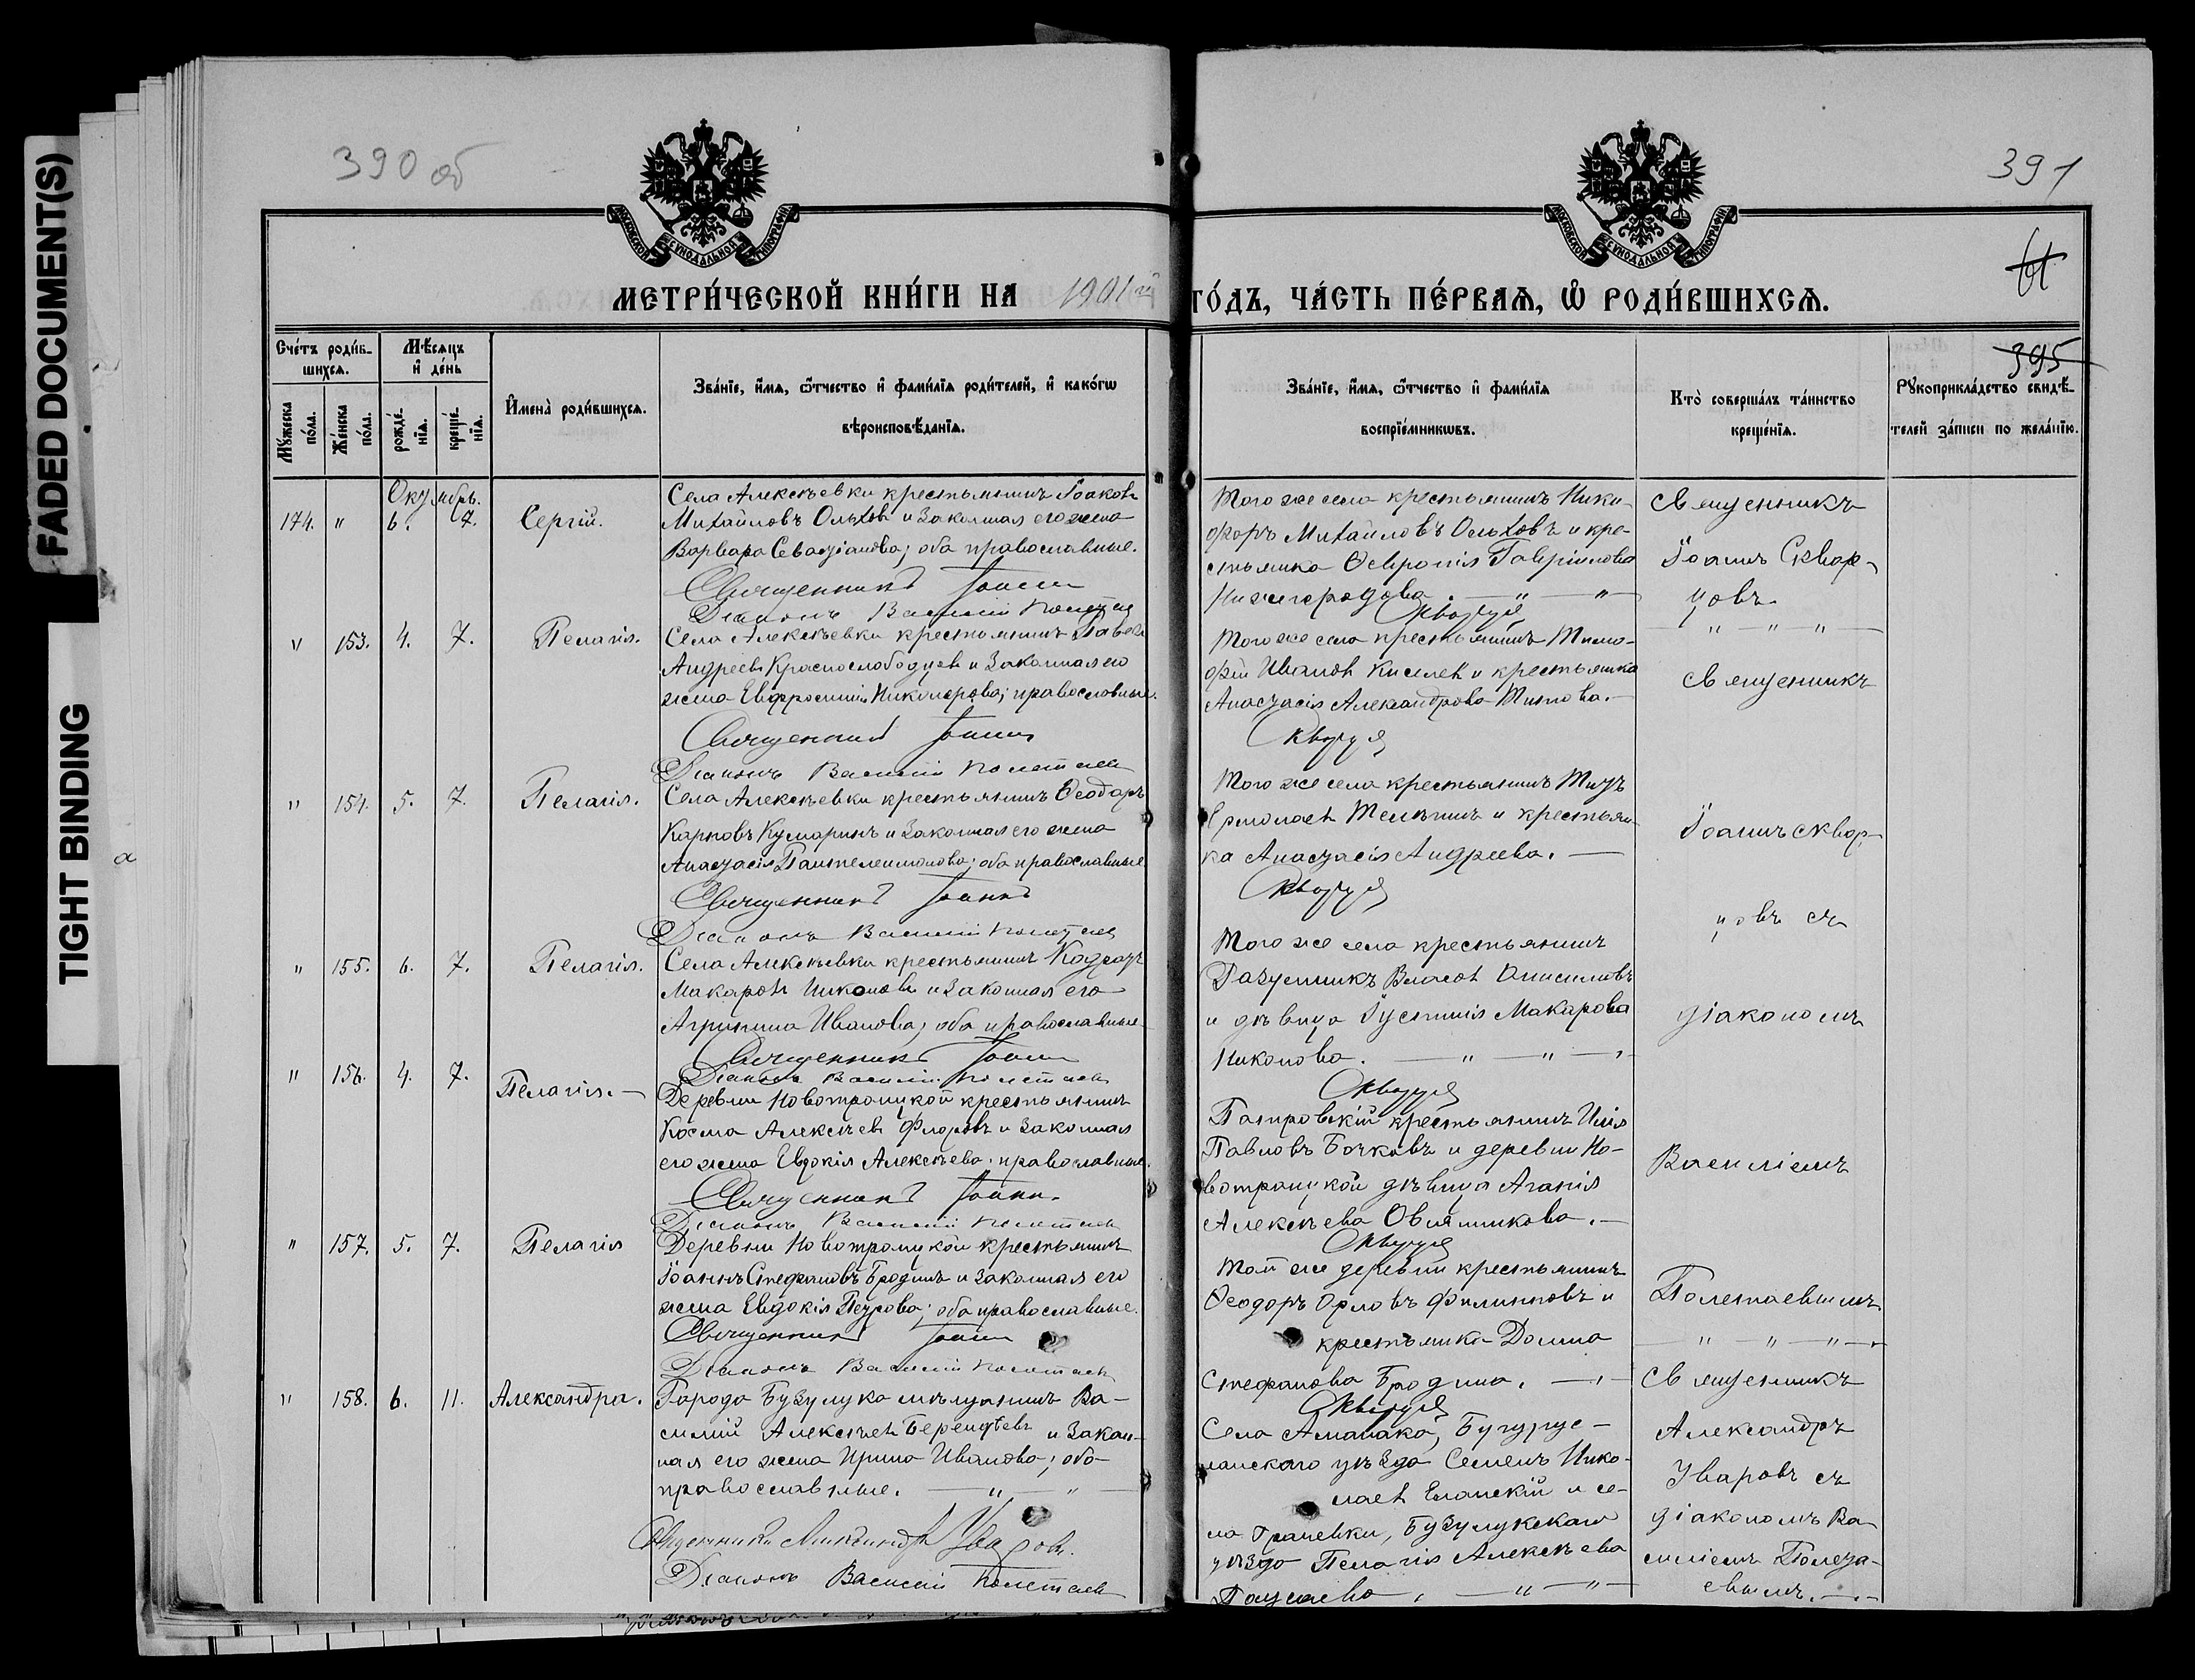 FADED DOCUMENT(S)
TIGHT BINDING
390 об
391
МОСКОВСКОЙ СУНОДАЛЬНОЙ ТИПОГРАФІИ
МОСКОВСКОЙ СУНОДАЛЬНОЙ ТИПОГРАФІИ
61
МЕТРИ́ЧЕСКОЙ КНИ́ГИ НА 1901 й ГО́ДЪ, ЧА́СТЬ ПЕ́РВАѦ, Ѡ РОДИ́ВШИХСѦ.
395
Сче́тъ роди́в-
шихся.
Мꙋжеска
по́ла.
Же́нска
по́ла.
Мѣ́сяцъ
и҆ де́нь
рожде́-
нїѧ.
креще́-
нїѧ.
И҆мена̀ роди́вшихся.
Зва́нїе, и҆́мя, ѻ҆́тчество и҆ фами́лїя роди́телей, и҆ како́гѡ
вѣроисповѣ́данїя.
Зва́нїе, и҆́мя, ѻ҆́тчество и҆ фами́лїя
воспрїе́мникѡвъ.
Кто̀ соверша́лъ та́инство
креще́нїя.
Рꙋкоприкла́дство свидѣ́-
телей за́писи по жела́нїю.
Октябрь.
174. " 6. 7. Сергій.
Села Алексѣевки крестьянинъ Іоаковъ
Михайловъ Ольховъ и законная его жена
Варвара Севастіанова; оба православные.
Священникъ Іоаннъ
Діаконъ Василій Полетаевъ
Того же села крестьянинъ Ники-
форъ Михайловъ Ольховъ и кре-
стьянка Февронія Гавріилова
Нижегородова. — " — " —
Скворцовъ
Священникъ
Іоаннъ Сквор-
цовъ.
— " — " — " —
" 153. 4. 7. Пелагія.
Села Алексѣевки крестьянинъ Павелъ
Андреевъ Краснослободцевъ и законная его
жена Евфросинія Никонорова; православные.
Священникъ Іоаннъ
Діаконъ Василій Полетаевъ
Того же села крестьянинъ Тимо-
фей Ивановъ Киселевъ и крестьянка
Анастасія Александрова Титова. —
Скворцовъ
Священникъ
" 154. 5. 7. Пелагія.
Села Алексѣевки крестьянинъ Ѳеодоръ
Карповъ Кумаринъ и законная его жена
Анастасія Пантелеимонова; оба православные
Священникъ Іоаннъ
Діаконъ Василій Полетаевъ
Того же села крестьянинъ Титъ
Ермолаевъ Телѣгинъ и крестьян-
ка Анастасія Андреева. —
Скворцовъ
Іоаннъ Сквор-
цовъ съ
" 155. 6. 7. Пелагія.
Села Алексѣевки крестьянинъ Кодратъ
Макаровъ Никоновъ и законная его
Агрипина Иванова; оба православные
Священникъ Іоаннъ
Діаконъ Василій Полетаевъ
Того же села крестьянинъ
Власовъ Анисимовъ
и дѣвица Іустинія Макарова
Никонова. — " — " —
Скворцовъ
діакономъ
" 156. 4. 7. Пелагія. —
Деревни Новотроицкой крестьянинъ
Косма Алексѣевъ Флоровъ и законная
его жена Евдокія Алексѣева. православные.
Священникъ Іоаннъ.
Діаконъ Василій Полетаевъ
крестьянинъ Илія
Павловъ Бочковъ и деревни Но-
вотроицкой дѣвица Агапія
Алексѣева Овиянникова. —
Скворцовъ
Василіемъ
" 157. 5. 7. Пелагія
Деревни Новотроицкой крестьянинъ
Іоаннъ Стефановъ Бродинъ и законная его
жена Евдокія Петрова; оба православные.
Священникъ Іоаннъ
Діаконъ Василій Полетаевъ
Той же деревни крестьянинъ
Ѳеодоръ Орловъ Филипповъ и
крестьянка Домна
Стефанова Бродина. —
Скворцовъ
Полетаевымъ.
" " — " —
" 158. 6. 11. Александра.
Города Бузулука мѣщанинъ Ва-
силій Алексѣевъ Берендѣевъ и закон-
ная его жена Ирина Иванова; оба
православные. — " — " —
Священникъ Александръ Уваровъ.
Діаконъ Василій Полетаевъ
Села Аманака, Бугурус-
ланскаго уѣзда Семенъ Нико-
лаевъ Еланскій и се-
ла Грачевки, Бузулукскаго
уѣзда Пелагія Алексѣева
— " — " —
Священникъ
Александръ
Уваровъ съ
діакономъ Ва-
силіемъ Полета-
евымъ. —